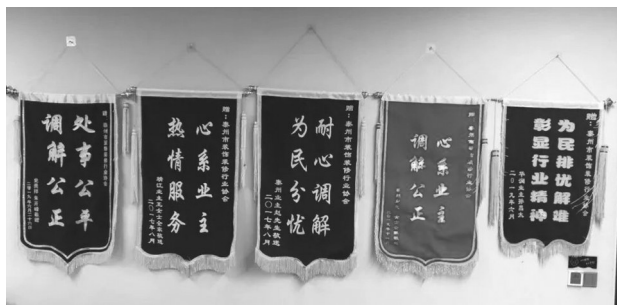 处事公平
调解公正
赠：泰州市装饰装修行业协会
心系业主
热情服务
二〇一七年八月
赠：泰州市装饰装修行业协会
耐心调解
为民分忧
泰州业主赵先生敬送
二〇一七年八月
心系业主
调解公正
赠：泰州市装饰装修行业协会
为民排忧解难
彰显行业精神
二〇一九年六月